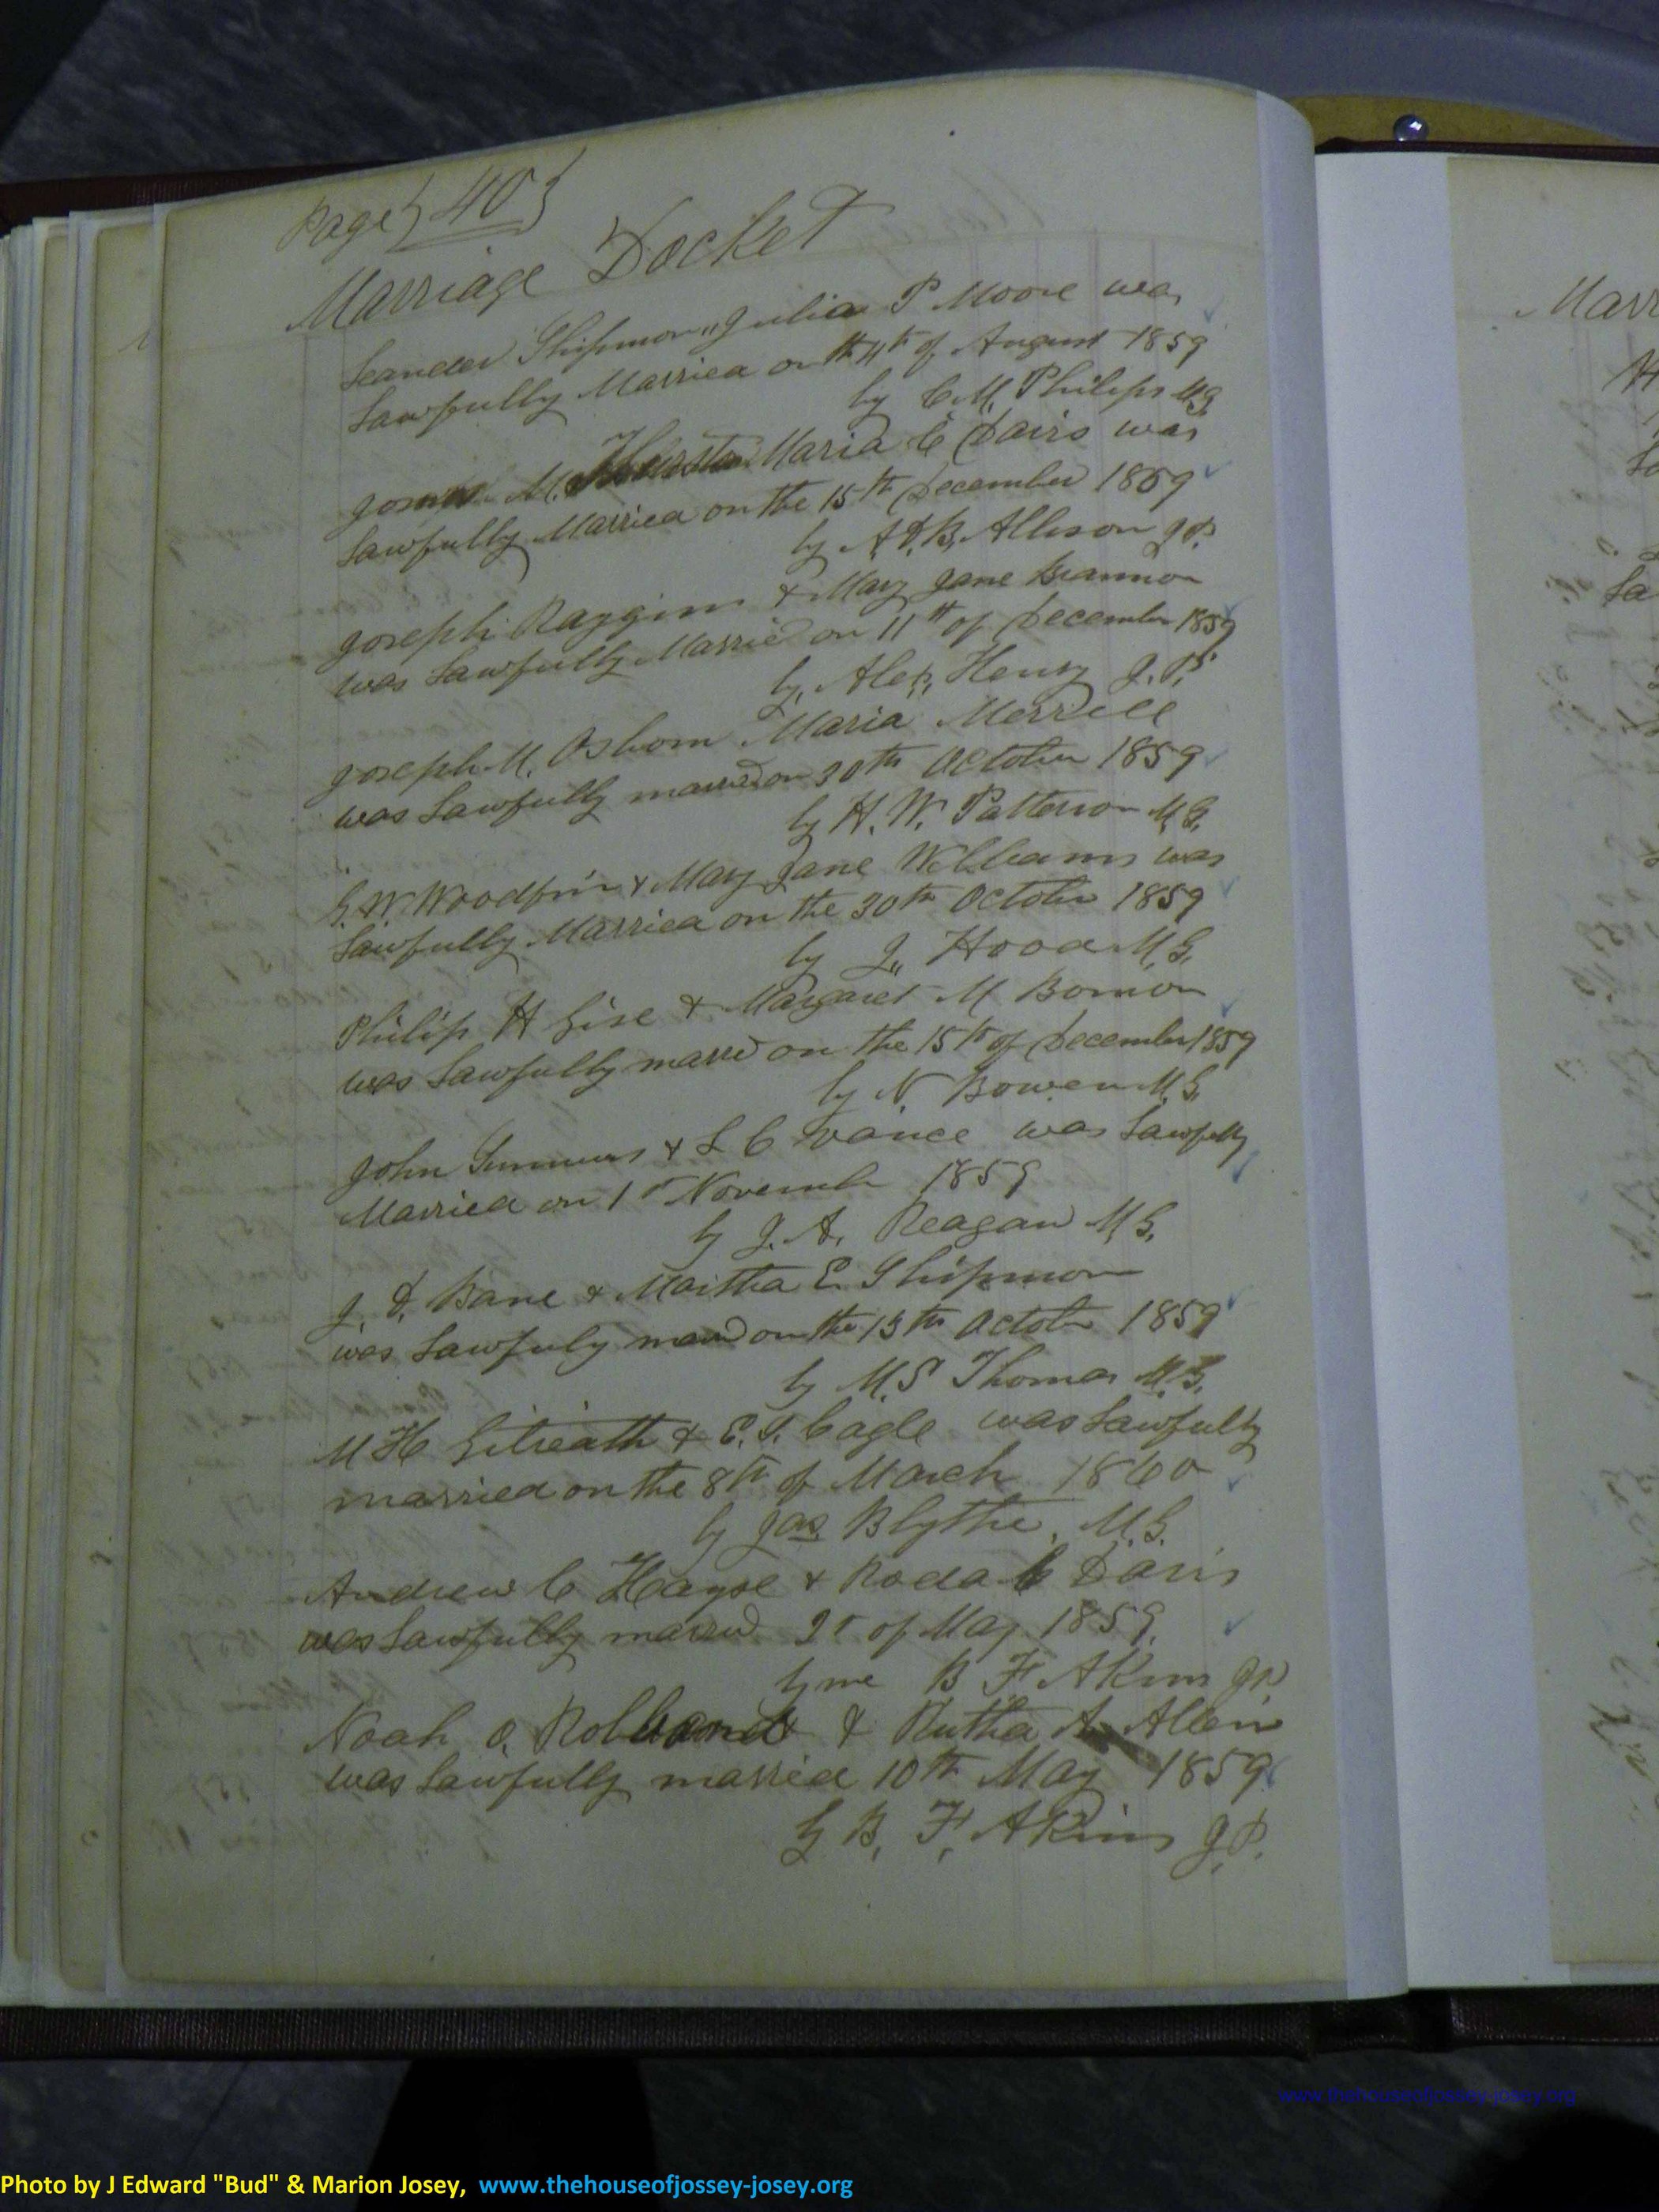 Page {40}
Marriage Docket
Leander Shipman,, Julia P Moore was
Lawfully Married on th 4th of August 1859
by C M, Philips MG
M. Maria C Davis was
Lawfully Married on the 15th December 1859
by A, B, Allison J P.
Joseph & Mary Jane Brannon
was Lawfully Married on 11th of December 1859
by, Alex, Henry J. P.
Joseph M, Osborn Maria Merrell
was Lawfully married on 30th October 1859
by H. W. Patterson M, G,
G. W Woodfin & Mary Jane Williams was
Lawfully Married on the 30th October 1859
by J,, Hood M, G,
Philip H & Margaret M
was Lawfully marrd on the 15th of December 1859
by N. Bowen M, G,
John Summers & L C Vance was Lawfully
Married on 1st November 1859
by J. A, Reagan M, G.
J. Bane & Martha E. Shipmon
was Lawfuly marrd on the 13th October 1859
by M. S Thomas M. G,
M H Gilreath & E. Cagle was Lawfully
married on the 8th of March 1860
by Jas. Blythe, M. G.
Andrew C Hayse & Roda Davis
was Lawfully marrid of May 1859.
by me B F Akins J P,
Noah & Rutha A Allen
was Lawfully married 10th May 1859
by B, F, Akins J. P.
Marr
www.thehouseofjossey-josey.org
Photo by J Edward "Bud" & Marion Josey, www.thehouseofjossey-josey.org